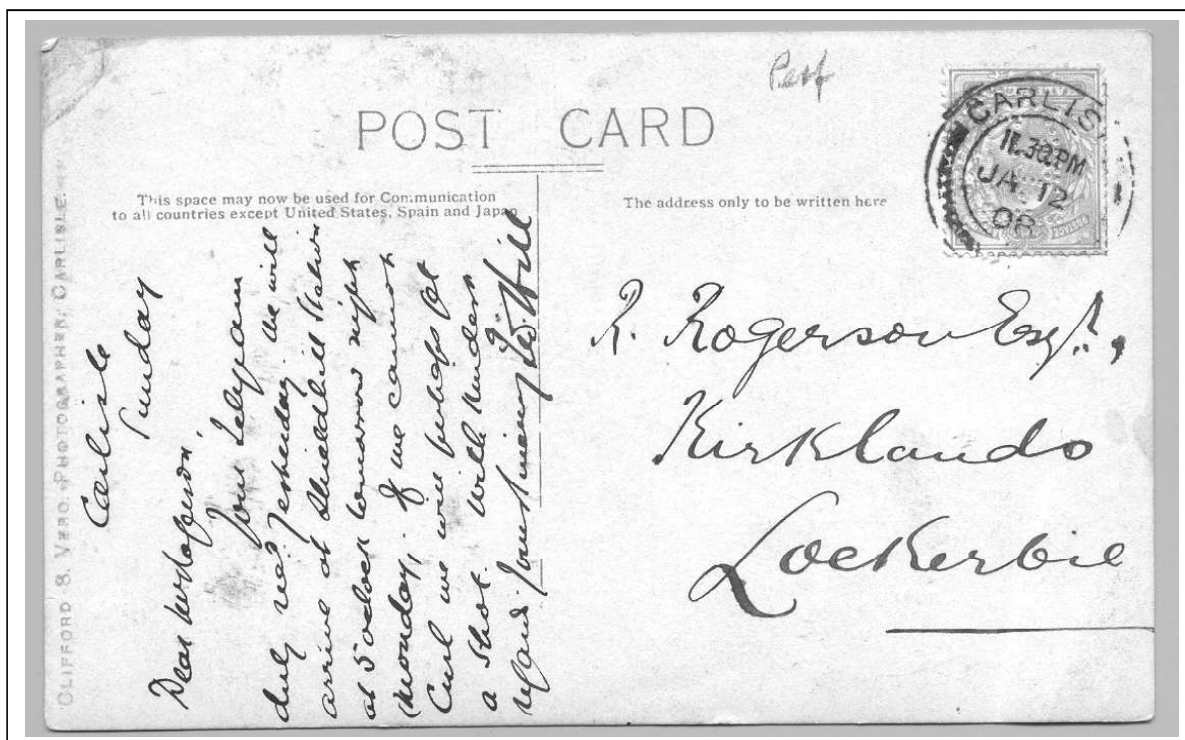 Perf
POST CARD
CARLIS
11.30PM
JA 12
08
This space may now be used for Communication
to all countries except United States, Spain and Japan
The address only to be written here
CLIFFORD S. VERO. PHOTOGRAPHER, CARLISLE.
Carlisle
Sunday
Dear
Your telegram
duly recd yesterday We will
arrive at Shieldhill Station
at 5 oclock tomorrow night
(Monday). If we cannot
Curl we will perhaps get
a shot. With kindest
regards Yours sincerely Hill
R. Rogerson Esqr.,
Kirklands
Lockerbie